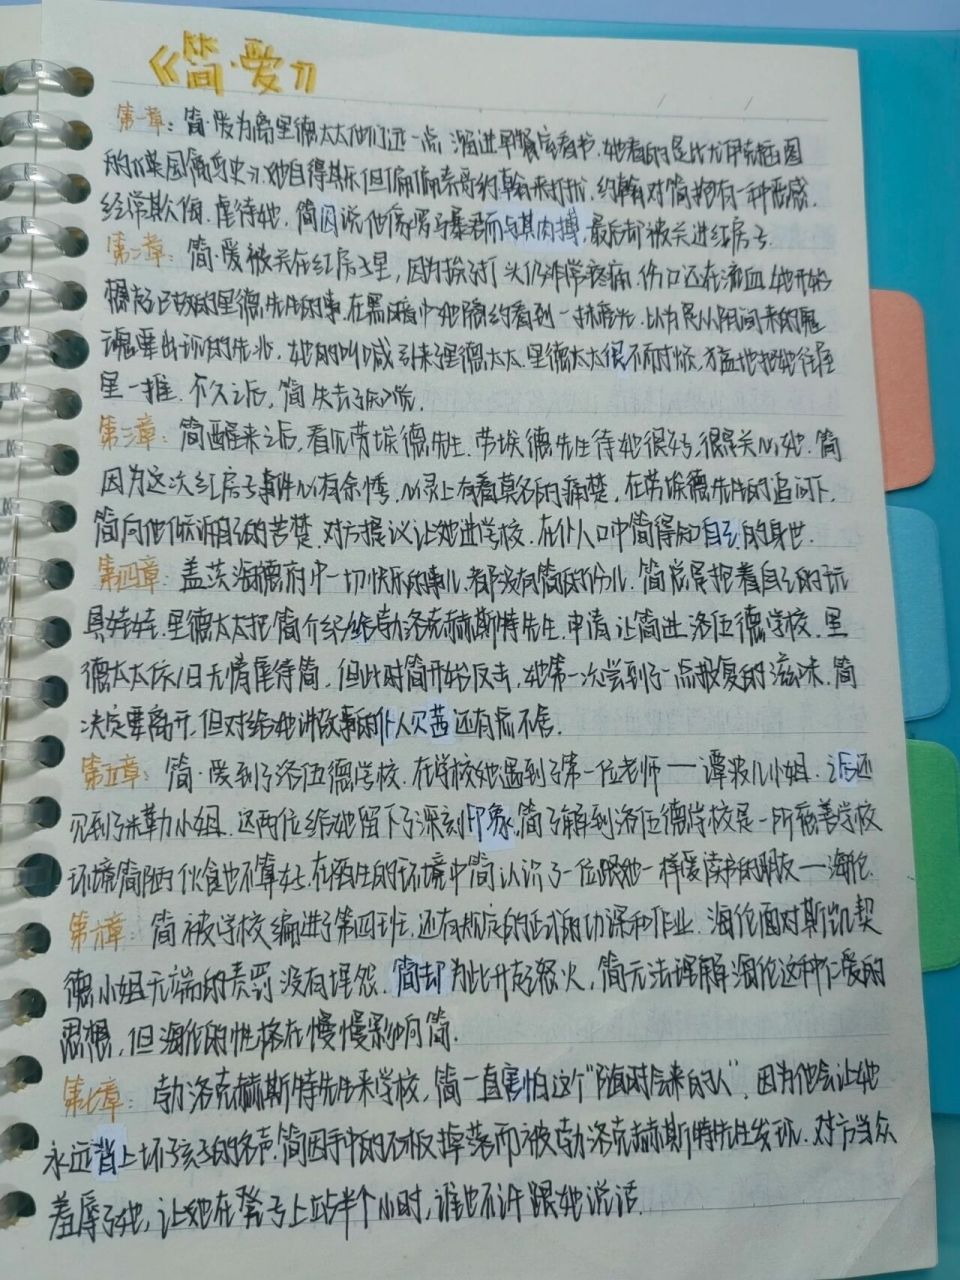 《简·爱》
第一章：简·爱为离里德太太他们远一点，溜进早餐室看书，她看的是比尤伊克插图
的《英国禽鸟史》，她自得其乐但偏偏表哥约翰来打扰，约翰对简抱有一种恶感，
经常欺侮、虐待她，简因说他像罗马暴君而与其肉搏，最后却被关进红房子。
第二章：简·爱被关在红房子里，因为挨了打头仍非常疼痛，伤口还在流血，她开始
想起已故的里德先生的事，在黑暗中她隐约看到一抹亮光，以为是从阴间来的鬼
魂要出现的先兆，她的叫喊引来了里德太太，里德太太很不耐烦，猛地把她往屋
里一推，不久之后，简失去了知觉。
第三章：简醒来之后，看见劳埃德先生，劳埃德先生待她很好，很是关心她，简
因为这次红房子事件心有余悸，心灵上有着莫名的痛楚，在劳埃德先生的追问下，
简向他倾诉自己的苦楚，对方提议让她进学校，在仆人口中简得知自己的身世.
第四章：盖茨海德府中一切快乐的事儿，都没有简的份儿，简总是抱着自己的玩
具娃娃，里德太太把简介绍给勃洛克赫斯特先生，申请让简进洛伍德学校，里
德太太依旧无情虐待简，但此时简开始反击，她第一次尝到了一点报复的滋味，简
决定要离开，但对给她讲故事的仆人贝茜还有点不舍.
第五章：简·爱到了洛伍德学校，在学校她遇到了第一位老师——谭波儿小姐，之后还
见到了米勒小姐，这两位给她留下了深刻印象，简了解到洛伍德学校是一所慈善学校
环境简陋伙食也不算好，在陌生的环境中简认识了一位跟她一样爱读书的朋友——海伦.
第六章：简被学校编进了第四班，还有规定的正式的功课和作业，海伦面对斯凯契
德小姐无端的责罚没有埋怨，简却为此升起怒火，简无法理解海伦这种仁爱的
思想，但海伦的性格在慢慢影响简.
第七章：勃洛克赫斯特先生来学校，简一直害怕这个“随时会来的人”，因为他会让她
永远背上坏孩子的名声，简因手中的石板掉落而被勃洛克赫斯特先生发现，对方当众
羞辱了她，让她在凳子上站半个小时，谁也不许跟她说话.